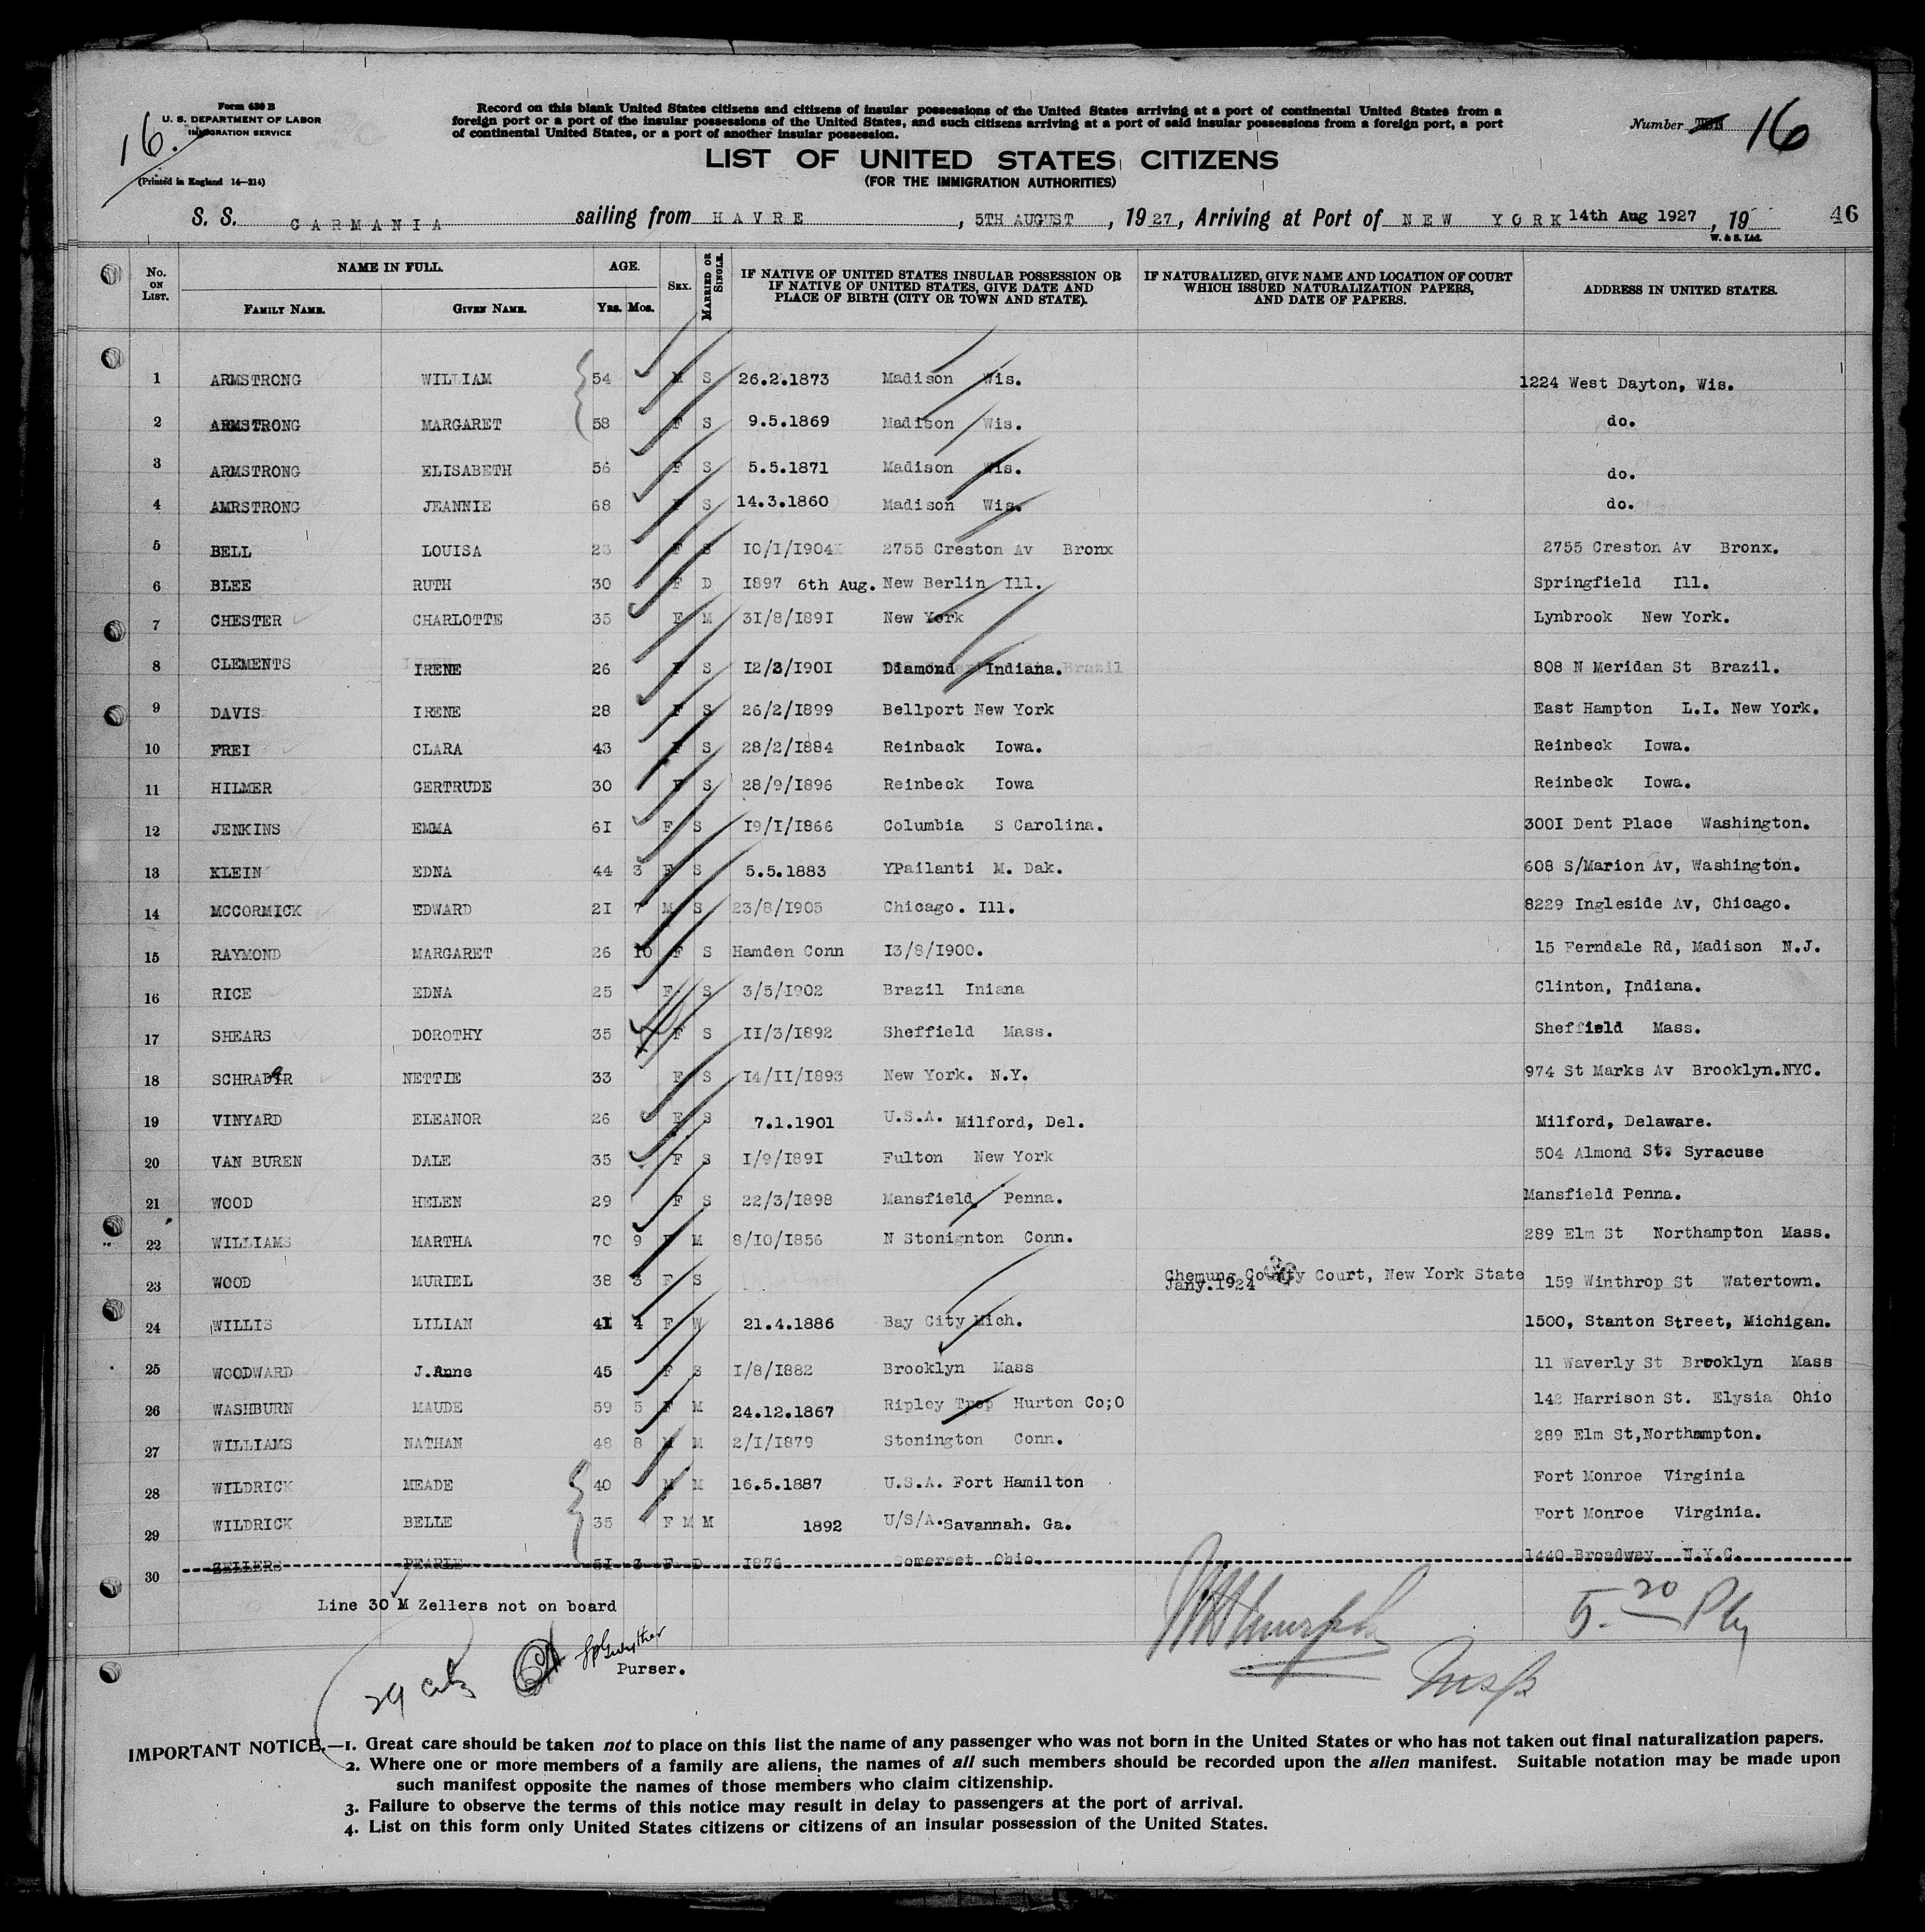 Form 630 B
U. S. DEPARTMENT OF LABOR
IMMIGRATION SERVICE
(Printed in England 14—214)
16.
Record on this blank United States citizens and citizens of insular possessions of the United States arriving at a port of continental United States from a
foreign port or a port of the insular possessions of the United States, and such citizens arriving at a port of said insular possessions from a foreign port, a port
of continental United States, or a port of another insular possession.
Number TEN 16
LIST OF UNITED STATES CITIZENS
(FOR THE IMMIGRATION AUTHORITIES)
S. S. CARMANIA sailing from HAVRE, 5TH AUGUST, 1927, Arriving at Port of NEW YORK 14th Aug 1927, 19 46
W. & S. Ltd.
No. ON LIST. NAME IN FULL. FAMILY NAME. GIVEN NAME. AGE. YRS. MOS. SEX. MARRIED OR SINGLE. IF NATIVE OF UNITED STATES INSULAR POSSESSION OR IF NATIVE OF UNITED STATES, GIVE DATE AND PLACE OF BIRTH (CITY OR TOWN AND STATE). IF NATURALIZED, GIVE NAME AND LOCATION OF COURT WHICH ISSUED NATURALIZATION PAPERS, AND DATE OF PAPERS. ADDRESS IN UNITED STATES.
1 ARMSTRONG WILLIAM 54 M S 26.2.1873 Madison Wis. 1224 West Dayton, Wis.
2 ARMSTRONG MARGARET 58 F S 9.5.1869 Madison Wis. do.
3 ARMSTRONG ELISABETH 56 F S 5.5.1871 Madison Wis. do.
4 AMRSTRONG JEANNIE 68 F S 14.3.1860 Madison Wis. do.
5 BELL LOUISA 23 F S 10/1/1904 2755 Creston Av Bronx 2755 Creston Av Bronx.
6 BLEE RUTH 30 F D 1897 6th Aug. New Berlin Ill. Springfield Ill.
7 CHESTER CHARLOTTE 35 F M 31/8/1891 New York Lynbrook New York.
8 CLEMENTS IRENE 26 F S 12/3/1901 Diamond Indiana. Brazil 808 N Meridan St Brazil.
9 DAVIS IRENE 28 F S 26/2/1899 Bellport New York East Hampton L.I. New York.
10 FREI CLARA 43 F S 28/2/1884 Reinback Iowa. Reinbeck Iowa.
11 HILMER GERTRUDE 30 F S 28/9/1896 Reinbeck Iowa Reinbeck Iowa.
12 JENKINS EMMA 61 F S 19/1/1866 Columbia S Carolina. 3001 Dent Place Washington.
13 KLEIN EDNA 44 3 F S 5.5.1883 YPailanti M. Dak. 608 S/Marion Av, Washington.
14 MCCORMICK EDWARD 21 7 M S 23/8/1905 Chicago. Ill. 8229 Ingleside Av, Chicago.
15 RAYMOND MARGARET 26 10 F S Hamden Conn 13/8/1900. 15 Ferndale Rd, Madison N.J.
16 RICE EDNA 25 F S 3/5/1902 Brazil Iniana Clinton, Indiana.
17 SHEARS DOROTHY 35 F S 11/3/1892 Sheffield Mass. Sheffield Mass.
18 SCHRADER NETTIE 33 F S 14/11/1893 New York. N.Y. 974 St Marks Av Brooklyn.NYC.
19 VINYARD ELEANOR 26 F S 7.1.1901 U.S.A. Milford, Del. Milford, Delaware.
20 VAN BUREN DALE 35 F S 1/9/1891 Fulton New York 504 Almond St. Syracuse
21 WOOD HELEN 29 F S 22/3/1898 Mansfield Penna. Mansfield Penna.
22 WILLIAMS MARTHA 70 9 F M 8/10/1856 N Stonignton Conn. 289 Elm St Northampton Mass.
23 WOOD MURIEL 38 3 F S Chemung County Court, New York State Jany.1924 159 Winthrop St Watertown.
24 WILLIS LILIAN 41 4 F W 21.4.1886 Bay City Mich. 1500, Stanton Street, Michigan.
25 WOODWARD J.Anne 45 F S 1/8/1882 Brooklyn Mass 11 Waverly St Brooklyn Mass
26 WASHBURN MAUDE 59 5 F M 24.12.1867 Ripley Trop Hurton Co;O 142 Harrison St. Elysia Ohio
27 WILLIAMS NATHAN 48 8 M M 2/1/1879 Stonington Conn. 289 Elm St,Northampton.
28 WILDRICK MEADE 40 M M 16.5.1887 U.S.A. Fort Hamilton Fort Monroe Virginia
29 WILDRICK BELLE 35 F M M 1892 U/S/A.Savannah. Ga. Fort Monroe Virginia.
30 ZELLERS PEARLE 51 3 F D 1876 Somerset Ohio. 1440 Broadway N.Y.C.
Line 30 M Zellers not on board
Purser.
29
5.20
IMPORTANT NOTICE.—1. Great care should be taken not to place on this list the name of any passenger who was not born in the United States or who has not taken out final naturalization papers.
2. Where one or more members of a family are aliens, the names of all such members should be recorded upon the alien manifest. Suitable notation may be made upon
such manifest opposite the names of those members who claim citizenship.
3. Failure to observe the terms of this notice may result in delay to passengers at the port of arrival.
4. List on this form only United States citizens or citizens of an insular possession of the United States.